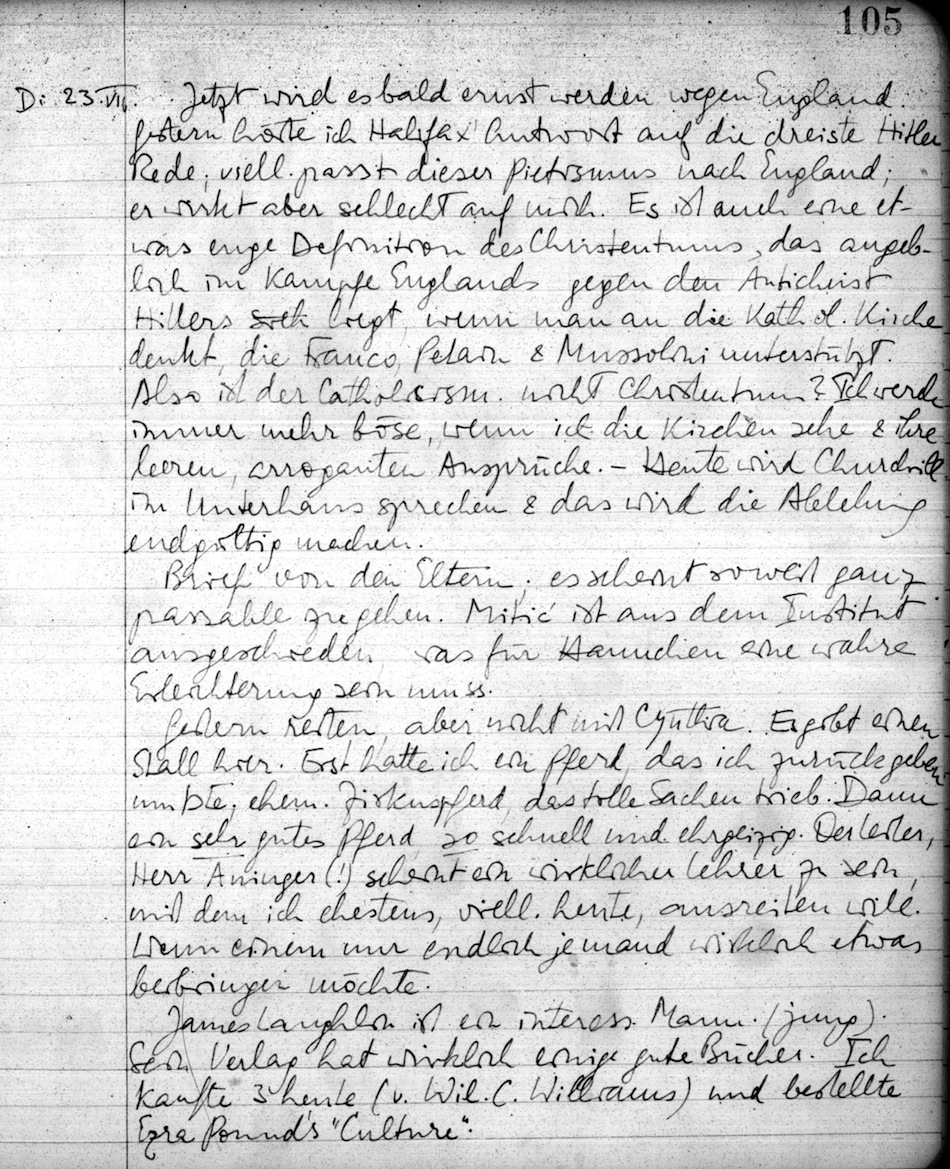 105
Di 23.VII. Jetzt wird es bald ernst werden wegen England.
Gestern hörte ich Halifax' Antwort auf die dreiste Hitler
Rede; viell. passt dieser Pietismus nach England;
er wirkt aber schlecht auf mich. Es ist auch eine et-
was enge Definition des Christentums, das angeb-
lich im Kampfe Englands gegen den Antichrist
Hitlers liegt, wenn man an die Kathol. Kirche
denkt, die Franco, Petain & Mussolini unterstützt.
Also ist der Catholicism. nicht Christentum? Ich werde
immer mehr böse, wenn ich die Kirchen sehe & ihre
leeren, arroganten Ansprüche. – Heute wird Churchill
im Unterhaus sprechen & das wird die Ablehung
endgültig machen.
Brief von den Eltern; es scheint soweit ganz
passable zu gehen. Mitić ist aus dem Institut
ausgeschieden, was für Hannchen eine wahre
Erleichterung sein muss.
Gestern reiten, aber nicht mit Cynthia. Es gibt einen
Stall hier. Erst hatte ich ein Pferd, das ich zurückgeben
mußte, ehem. Zirkuspferd, das tolle Sachen trieb. Dann
ein sehr gutes Pferd, so schnell und ehrgeizig. Der Leiter,
Herr Aninger (!) scheint ein wirklicher Lehrer zu sein,
mit dem ich ehestens, viell. heute, ausreiten will.
Wenn einem nur endlich jemand wirklich etwas
beibringen möchte.
James Laughlin ist ein interess. Mann. (jung).
Sein Verlag hat wirklich einige gute Bücher. Ich
kaufte 3 heute (v. Wil. C. Williams) und bestellte
Ezra Pound's "Culture".